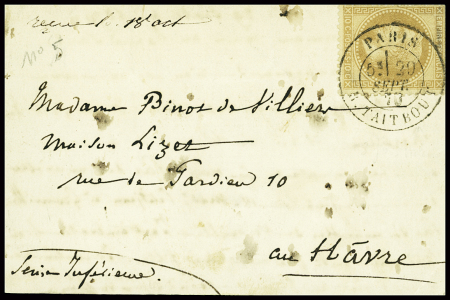 reçue le 18 oct
no 5
PARIS
5E 29
SEPT.
70
R. TAITBOUT
Madame Binos de Villiers
Maison Lizot
rue de Tardieu 10
au Hâvre
Seine Inférieure.